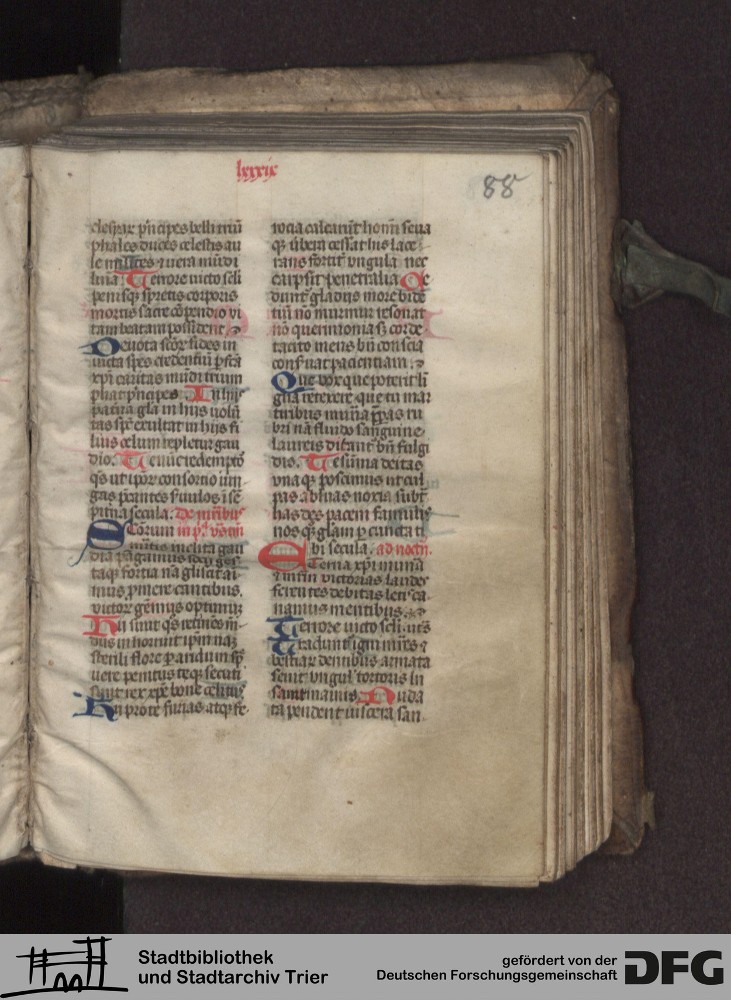 lxxxix
88
clesiar̄ p̄ncipes belli triū
phales duces celestis au
le milites & uera mūdi
lūīa. Terrore uicto seli
penisq̄ spretis corporis
mortis sacre cōpendio vi
tam beatam possident
Deuota scōr̄ fides in
uicta spes credentiū p̄fcā
xp̄i caritas mūdi trium
phat p̄ncipes In hijs
pat̄na gl̄a in hijs uolū
tas sp̄c exultat in hijs fi
lius celum repletur gau
dio. Te nūc redemptor
q̄s ut ipor̄ consortio iun
gas p̄cantes s̄uulos ī sē
pit̄na secula. De mr̄ibus
Scōrum in p̄. vs̄
m̄itis inclita gau
dia pāgamus socij ges
taq̄ fortia nā gliscit ai
mus p̄mere cantibus
victor̄ gēnus optimū
Hij sunt q̄s retinēs mū
dus inhorruit ip̄m nā
sterili flore p̄aridum sp̄
uere penitus teq̄ secuti
sunt rex xp̄e bone celitus
Hij pro te furias atq̄ fe
rocia calcarūt hoīm seua
q̄ ūbera cessit his lace
rans fortit̄ ungula nec
carpsit penetralia Ce
duntr̄ gladiis more bidē
tiū nō murmur resonat
nō querimonia s̄ corde
tacito mens bn̄ conscia
cons̄uat pacientiam
Que vox que poterit lī
gua retexere que tu mar
tiribus mun̄a p̄pas ru
bri nā fluido sanguine
laureis ditant̄ bn̄ fulgi
dis. Te sūma deitas
unaq̄ poscimus ut cul
pas abluas noxia subt̄
has des pacem famulis
nos q̄ gl̄am p̄ cuncta ti
bi secula. ad noctn̄.
Eterna xp̄i mun̄a
& mr̄m victorias laudes
ferentes debitas letis ca
namus mentibus.
Terrore uicto seli. uts̄
Tradunt̄ igni mr̄es &
bestiar̄ dentibus armata
seuit ungul' tortoris in
sani manus. Nuda
ta pendent uiscera san
Stadtbibliothek
und Stadtarchiv Trier
gefördert von der
Deutschen Forschungsgemeinschaft
DFG